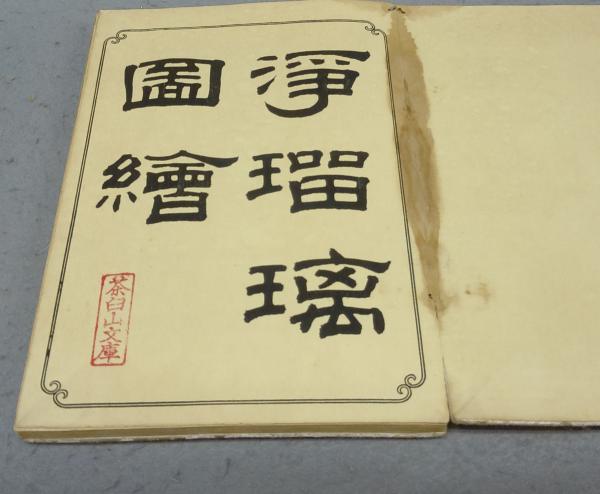 淨瑠璃
圖繪
茶臼山文庫